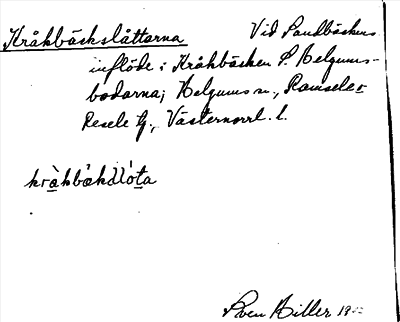 Kråkbäckslåttarna Vid Sandbäckens
inflöde i Kråkbäcken S. Helgums-
bodarna; Helgums sn, Ramsele o
Resele tg., Västernorrl. l.
kråkbäkslòta
Sven Hiller 19